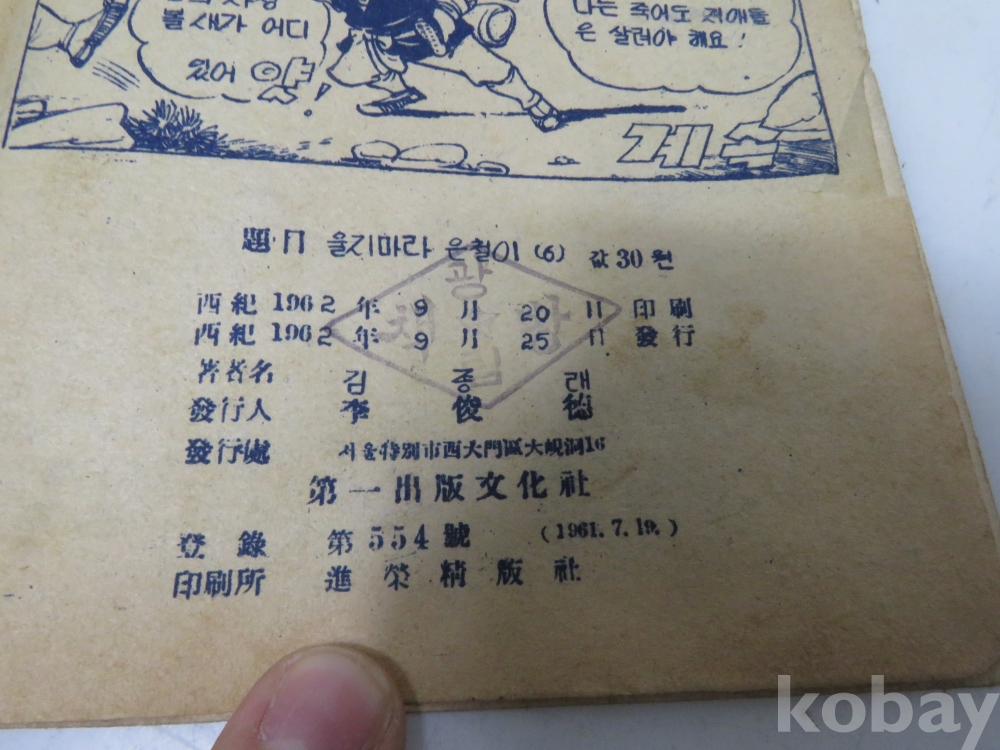 불새가 어디
있어 얏!
나는 죽어도 저애들
은 살려야 해요!
계속
題目 울지마라 은철이 (6) 값 30 원
西紀 1962 年 9 月 20 日 印刷
西紀 1962 年 9 月 25 日 發行
著者名 김종래
發行人 李俊德
發行處 서울特別市西大門區大峴洞16
第一出版文化社
登錄 第554號 (1961.7.19.)
印刷所 進榮精版社
kobay